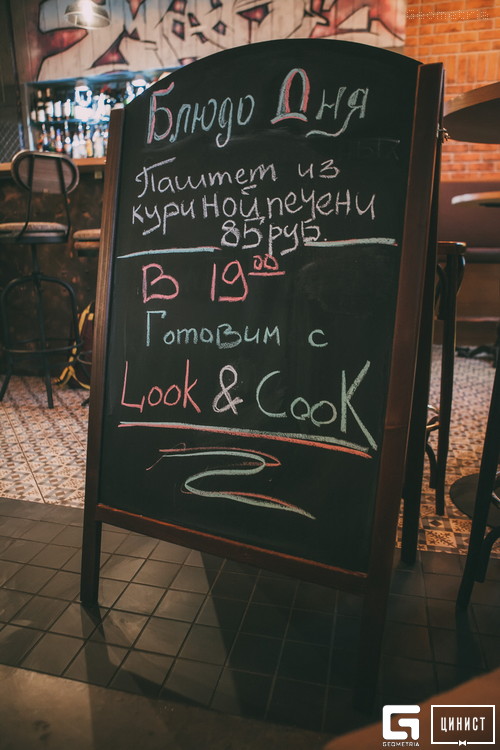 geometria
Блюдо Дня
Паштет из
куриной печени
85 руб.
В 19 00
Готовим с
Look & Cook
GEOMETRIA
ЦИНИСТ